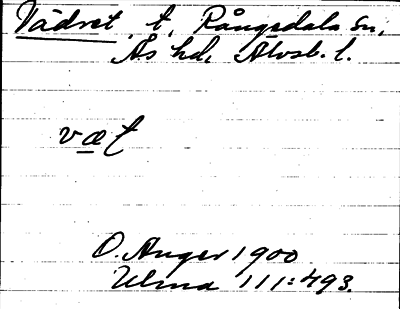 Vädret, t, Rångedala sn,
Ås hd, Älvsb. l.
væt
O. Anger 1900
Ulma 111:493.